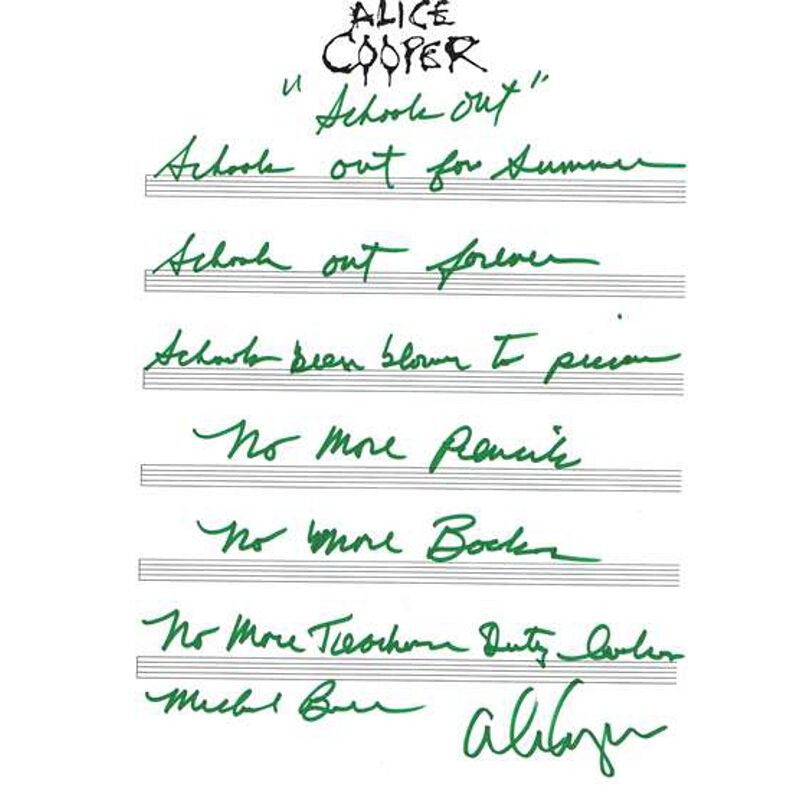 ALICE
COOPER
"Schools Out"
Schools out for Summer
Schools out forever
Schools been blown to pieces
No More Pencils
No More Books
No More Teachers Dirty Looks